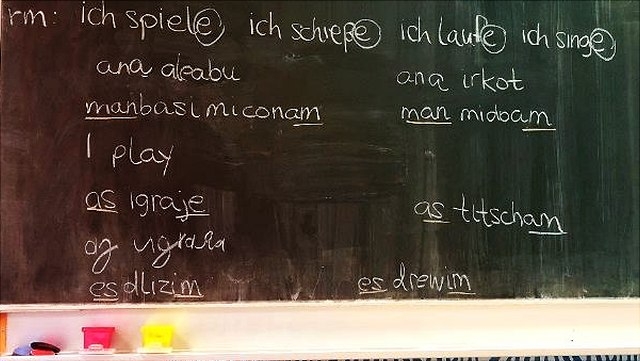 rm: ich spiele ich schieße ich laufe ich singe
ana aleabu ana irkot
manbasi miconam man midoam
I play
as igraje as titscham
es dlizim es drewim